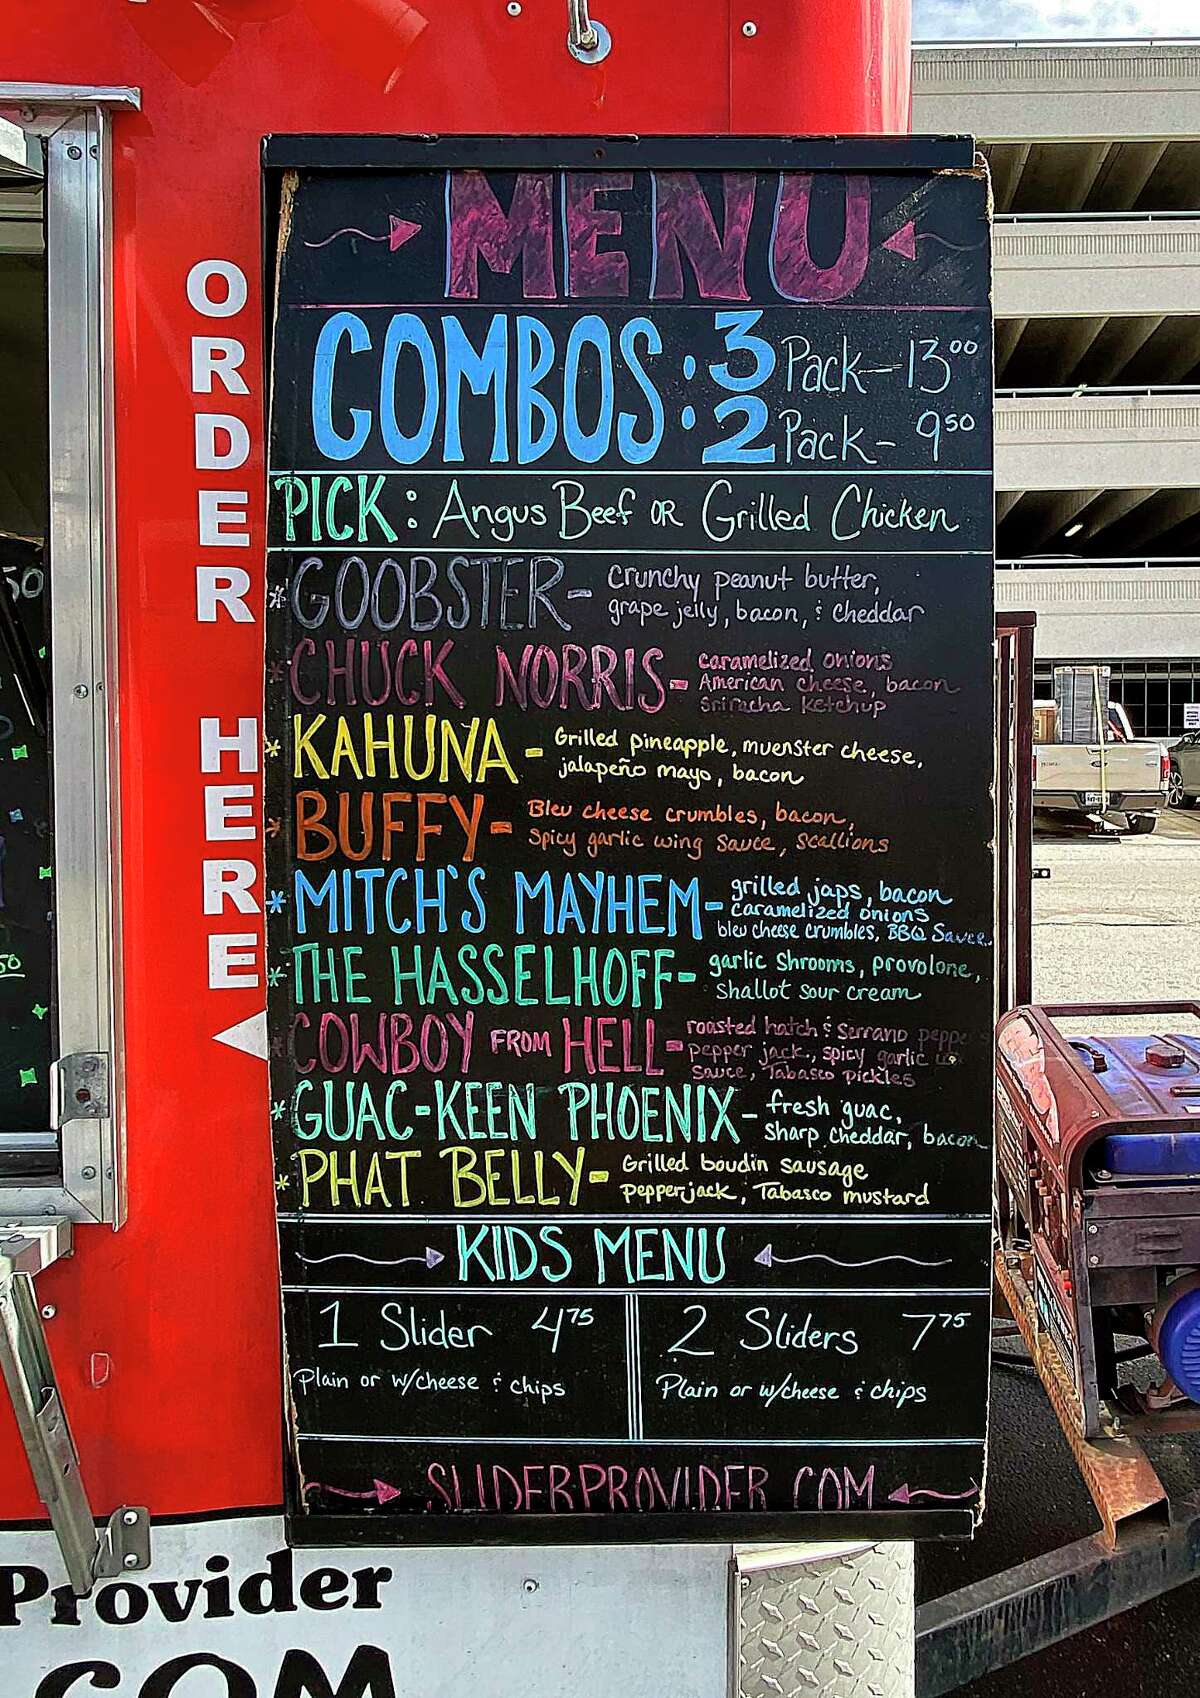 MENU
COMBOS: 3 Pack - 13.00
2 Pack - 9.50
PICK: Angus Beef OR Grilled Chicken
* GOOBSTER - Crunchy peanut butter,
grape jelly, bacon, & cheddar
* CHUCK NORRIS - caramelized onions
American cheese, bacon
Sriracha Ketchup
* KAHUNA - Grilled pineapple, muenster cheese,
jalapeño mayo, bacon
* BUFFY - Bleu cheese crumbles, bacon,
spicy garlic wing sauce, scallions
* MITCH'S MAYHEM - grilled japs, bacon
caramelized onions
bleu cheese crumbles, BBQ Sauce
* THE HASSELHOFF - garlic shrooms, provolone,
shallot sour cream
* COWBOY FROM HELL - roasted hatch & Serrano
pepper jack, spicy garlic
sauce, Tabasco pickles
* GUAC-KEEN PHOENIX - fresh guac,
sharp cheddar, bacon
* PHAT BELLY - Grilled boudin sausage
pepperjack, Tabasco mustard
KIDS MENU
1 Slider 4.75
Plain or w/cheese & chips
2 Sliders 7.75
Plain or w/cheese & chips
SLIDERPROVIDER.COM
ORDER HERE
Provider
.COM